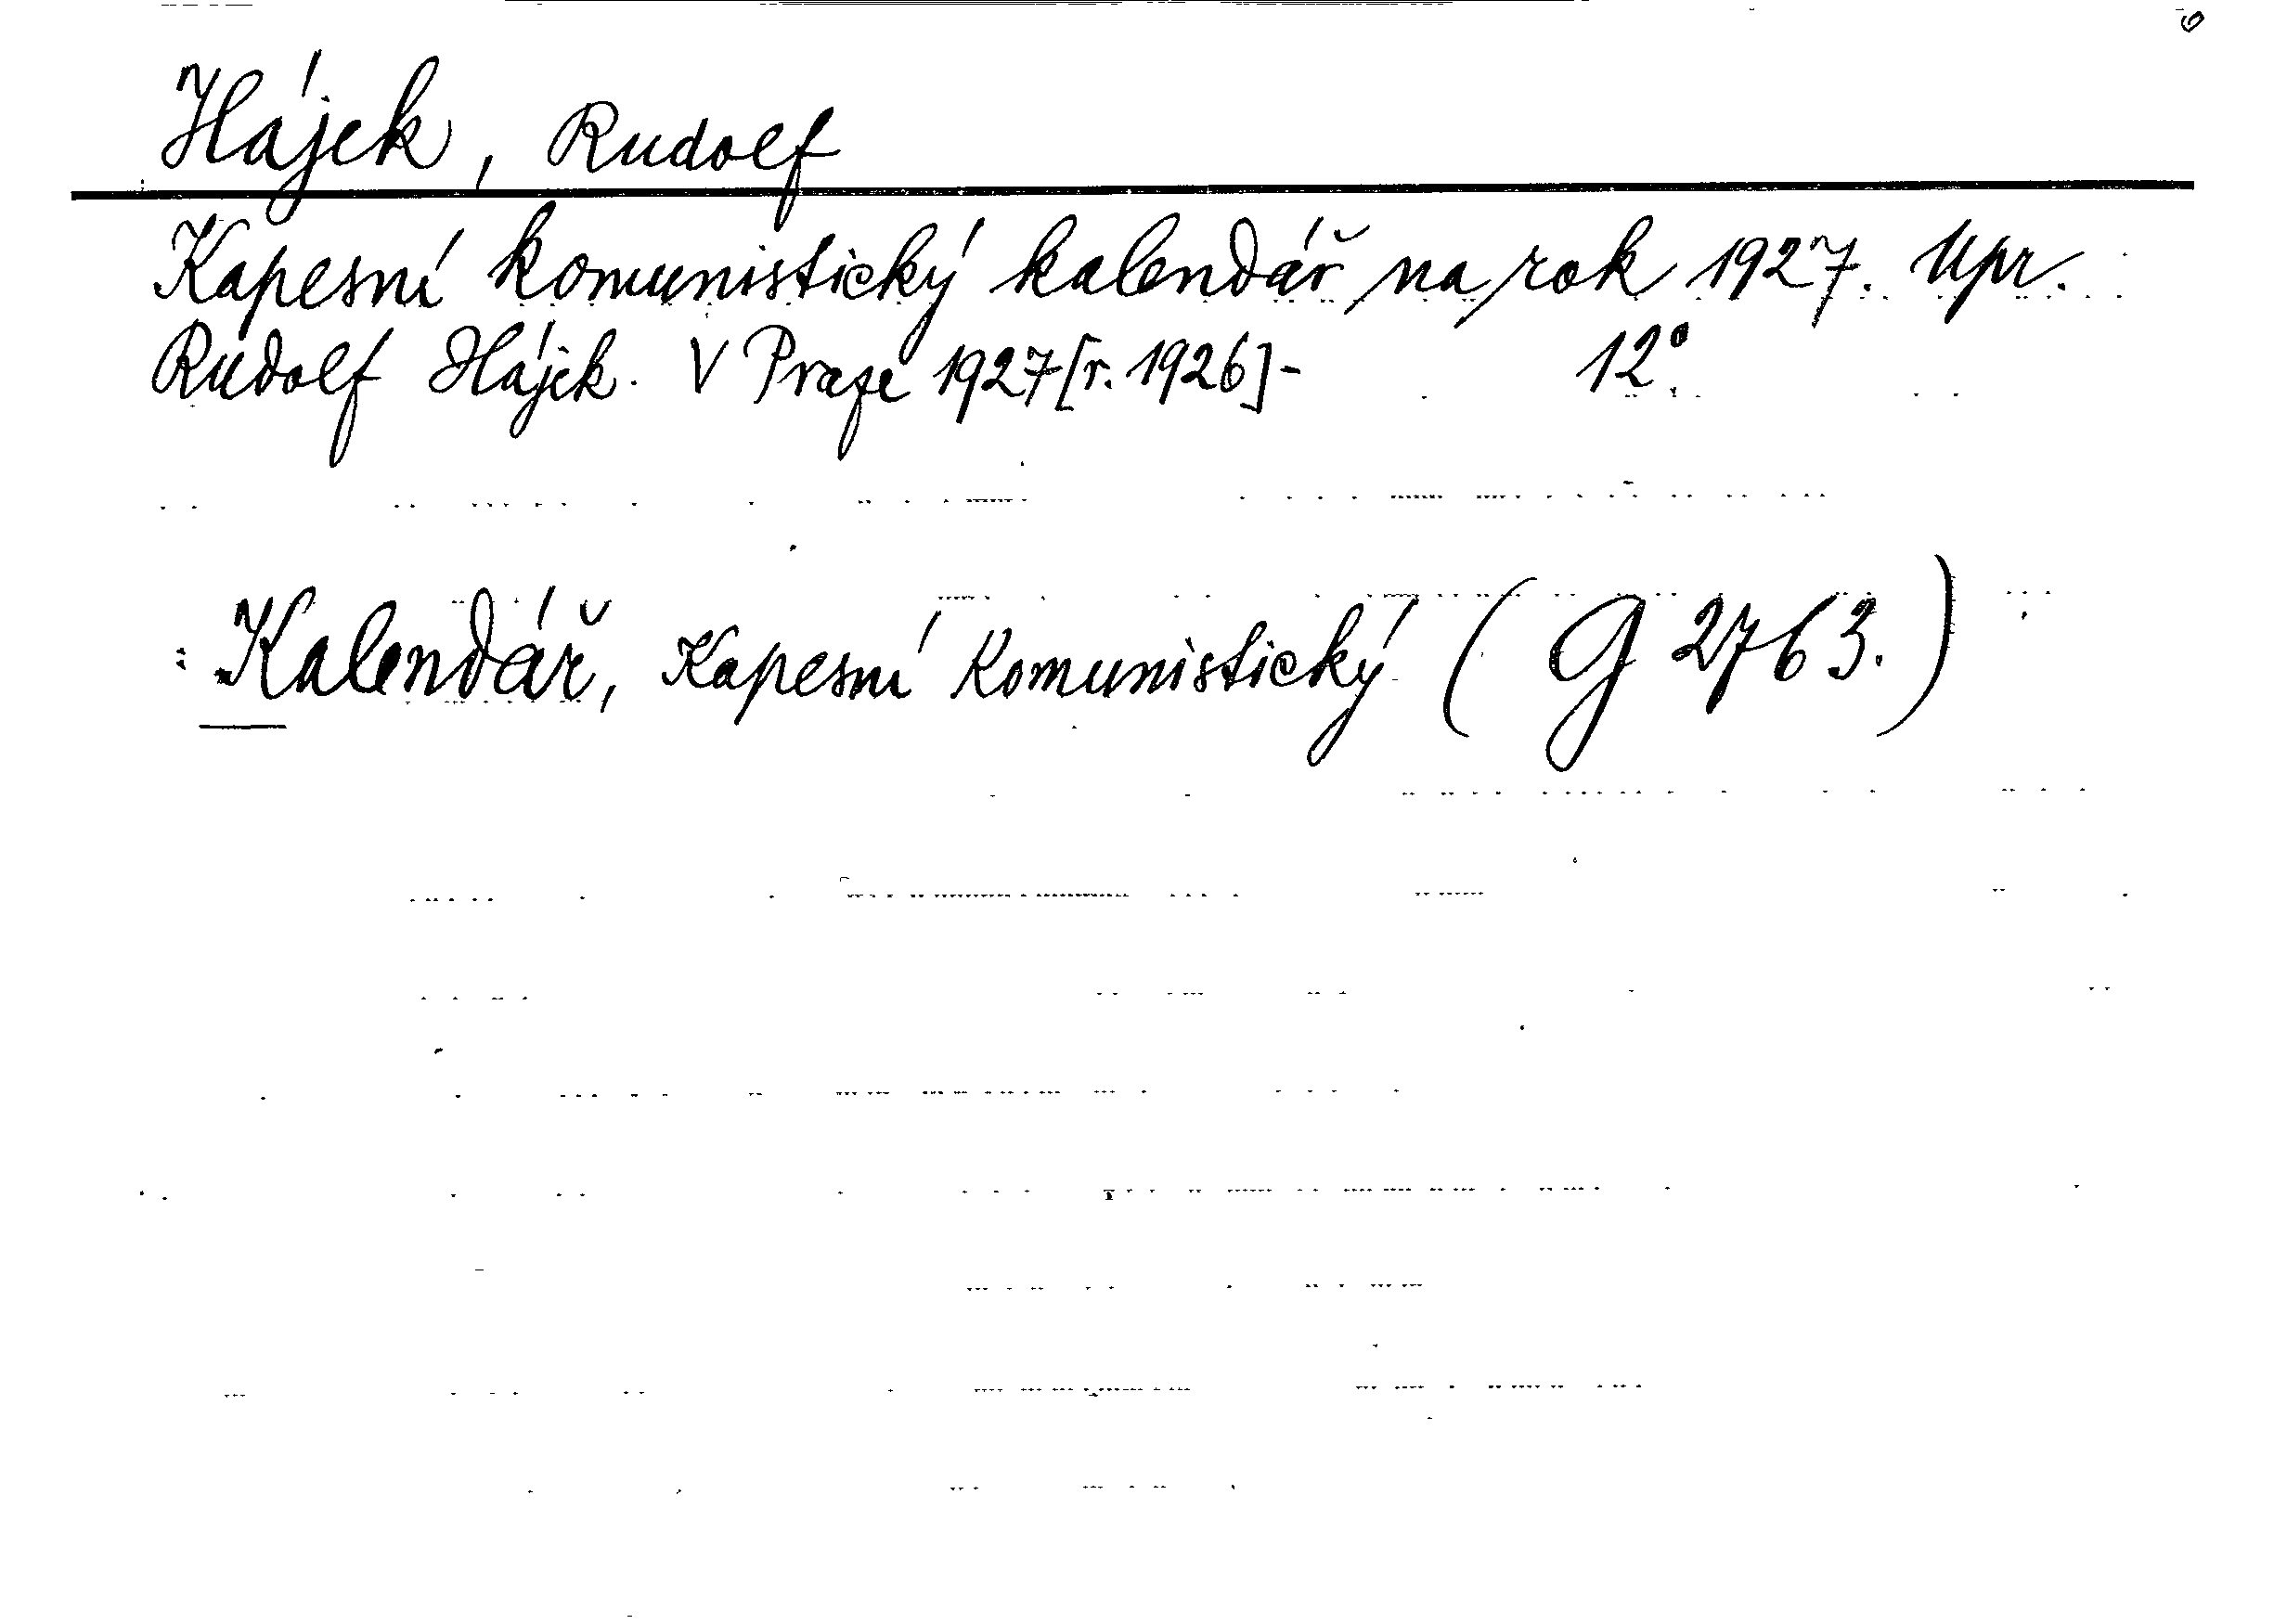 Hájek, Rudolf
Kapesní komunistický kalendář na rok 1927. Upr.
Rudolf Hájek. V Praze 1927 [r. 1926] - 12°.
: Kalendář, Kapesní komunistický (G 2763.)